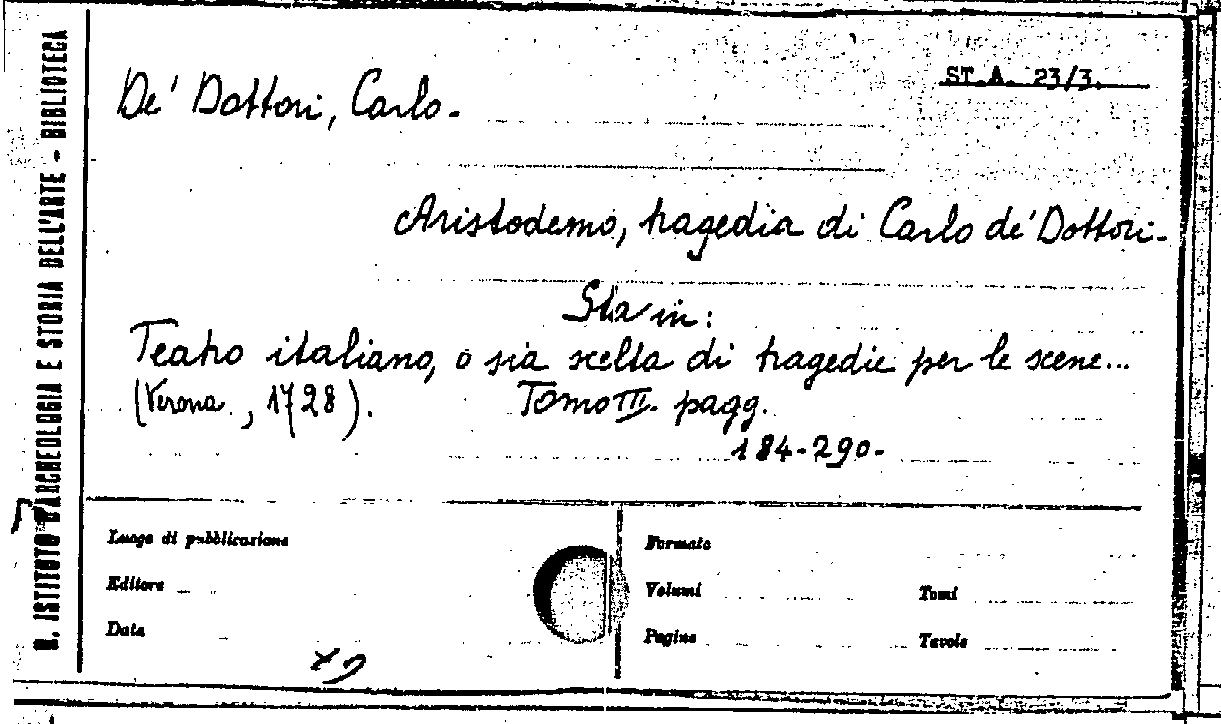 R. ISTITUTO D'ARCHEOLOGIA E STORIA DELL'ARTE - BIBLIOTECA
ST.A. 23/3.
De' Dottori, Carlo.
Aristodemo, tragedia di Carlo de' Dottori.
Sta in:
Teatro italiano, o sia scelta di tragedie per le scene...
(Verona, 1728). Tomo III. pagg.
184-290.
Luogo di pubblicazione
Formato
Editore
Volumi
Tomi
Data
Pagine
Tavole